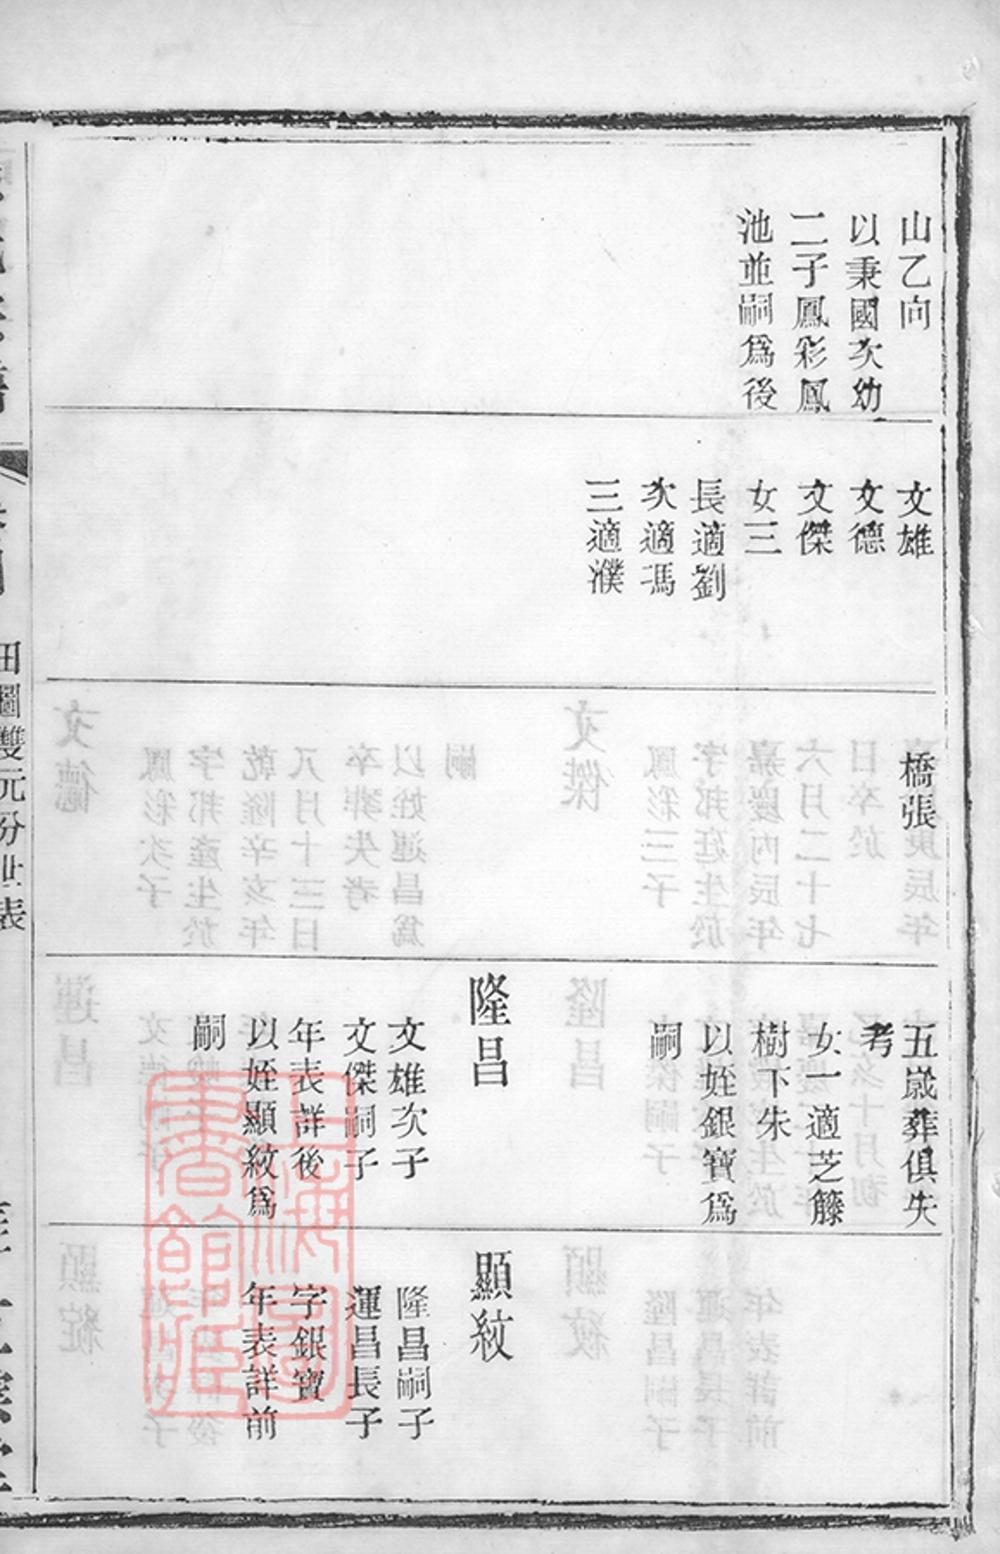 山乙向
以秉國次幼
二子鳳彩鳳
池並嗣爲後
文雄
文德
文傑
女三
長適劉
次適馮
三適濮
橋張
五歲葬俱失
考
女一適芝籐
樹下朱
以姪銀寶爲
嗣
隆昌
文雄次子
文傑嗣子
年表詳後
以姪顯紋爲
嗣
顯紋
隆昌嗣子
運昌長子
字銀寶
年表詳前
田圖雙元份世表
上海圖
書館藏